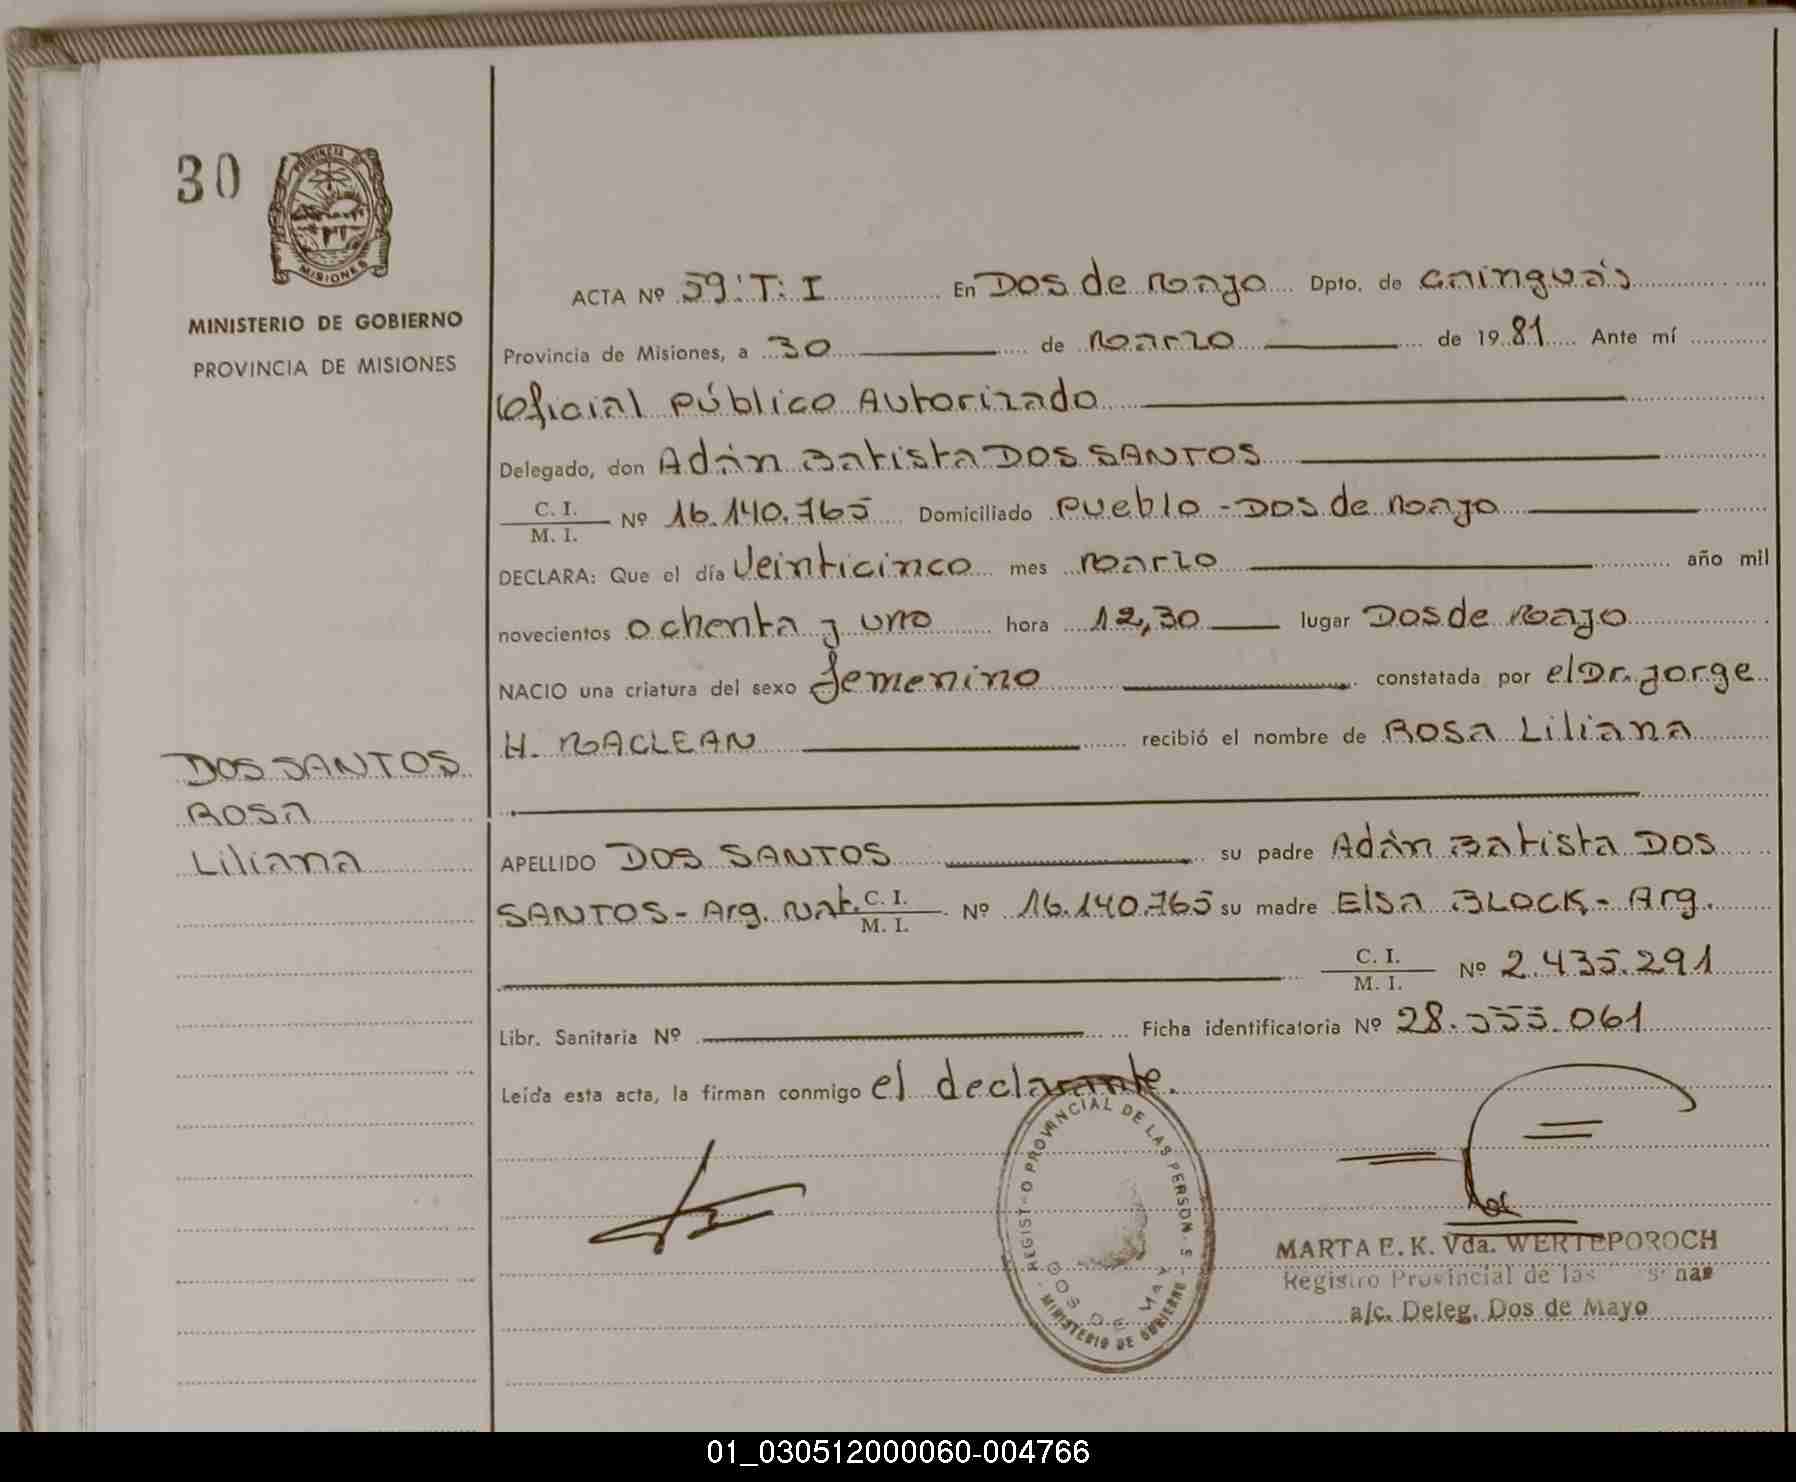 30
PROVINCIA DE
MISIONES
MINISTERIO DE GOBIERNO
PROVINCIA DE MISIONES
DOS SANTOS
ROSA
Liliana
ACTA Nº 59:T: I En Dos de Mayo Dpto. de Cainguás
Provincia de Misiones, a 30 de Marzo de 1981 Ante mí
Oficial Público Autorizado
Delegado, don Adán Batista DOS SANTOS
C. I.
M. I. Nº 16.140.765 Domiciliado Pueblo - Dos de Mayo
DECLARA: Que el día Veinticinco mes Marzo año mil
novecientos ochenta y uno hora 12,30 lugar Dos de Mayo
NACIO una criatura del sexo femenino constatada por el Dr. Jorge
H. MACLEAN recibió el nombre de Rosa Liliana
APELLIDO DOS SANTOS su padre Adán Batista DOS
SANTOS - Arg. Nat. C. I. M. I. Nº 16.140.765 su madre Elsa BLOCK - Arg.
C. I.
M. I. Nº 2.435.291
Libr. Sanitaria Nº Ficha identificatoria Nº 28.555.061
Leída esta acta, la firman conmigo el declarante.
PROVINCIAL DE LAS
DOS DE MAY
MINISTERIO DE GOBIERNO
MARTA E. K. Vda. WERTEPOROCH
Registro Provincial de las
a/c. Deleg. Dos de Mayo
01_030512000060-004766